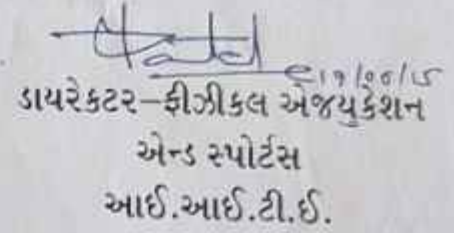 ડાયરેકટર-ફીઝીકલ એજયુકેશન
એન્ડ સ્પોર્ટસ
આઈ.આઈ.ટી.ઈ.